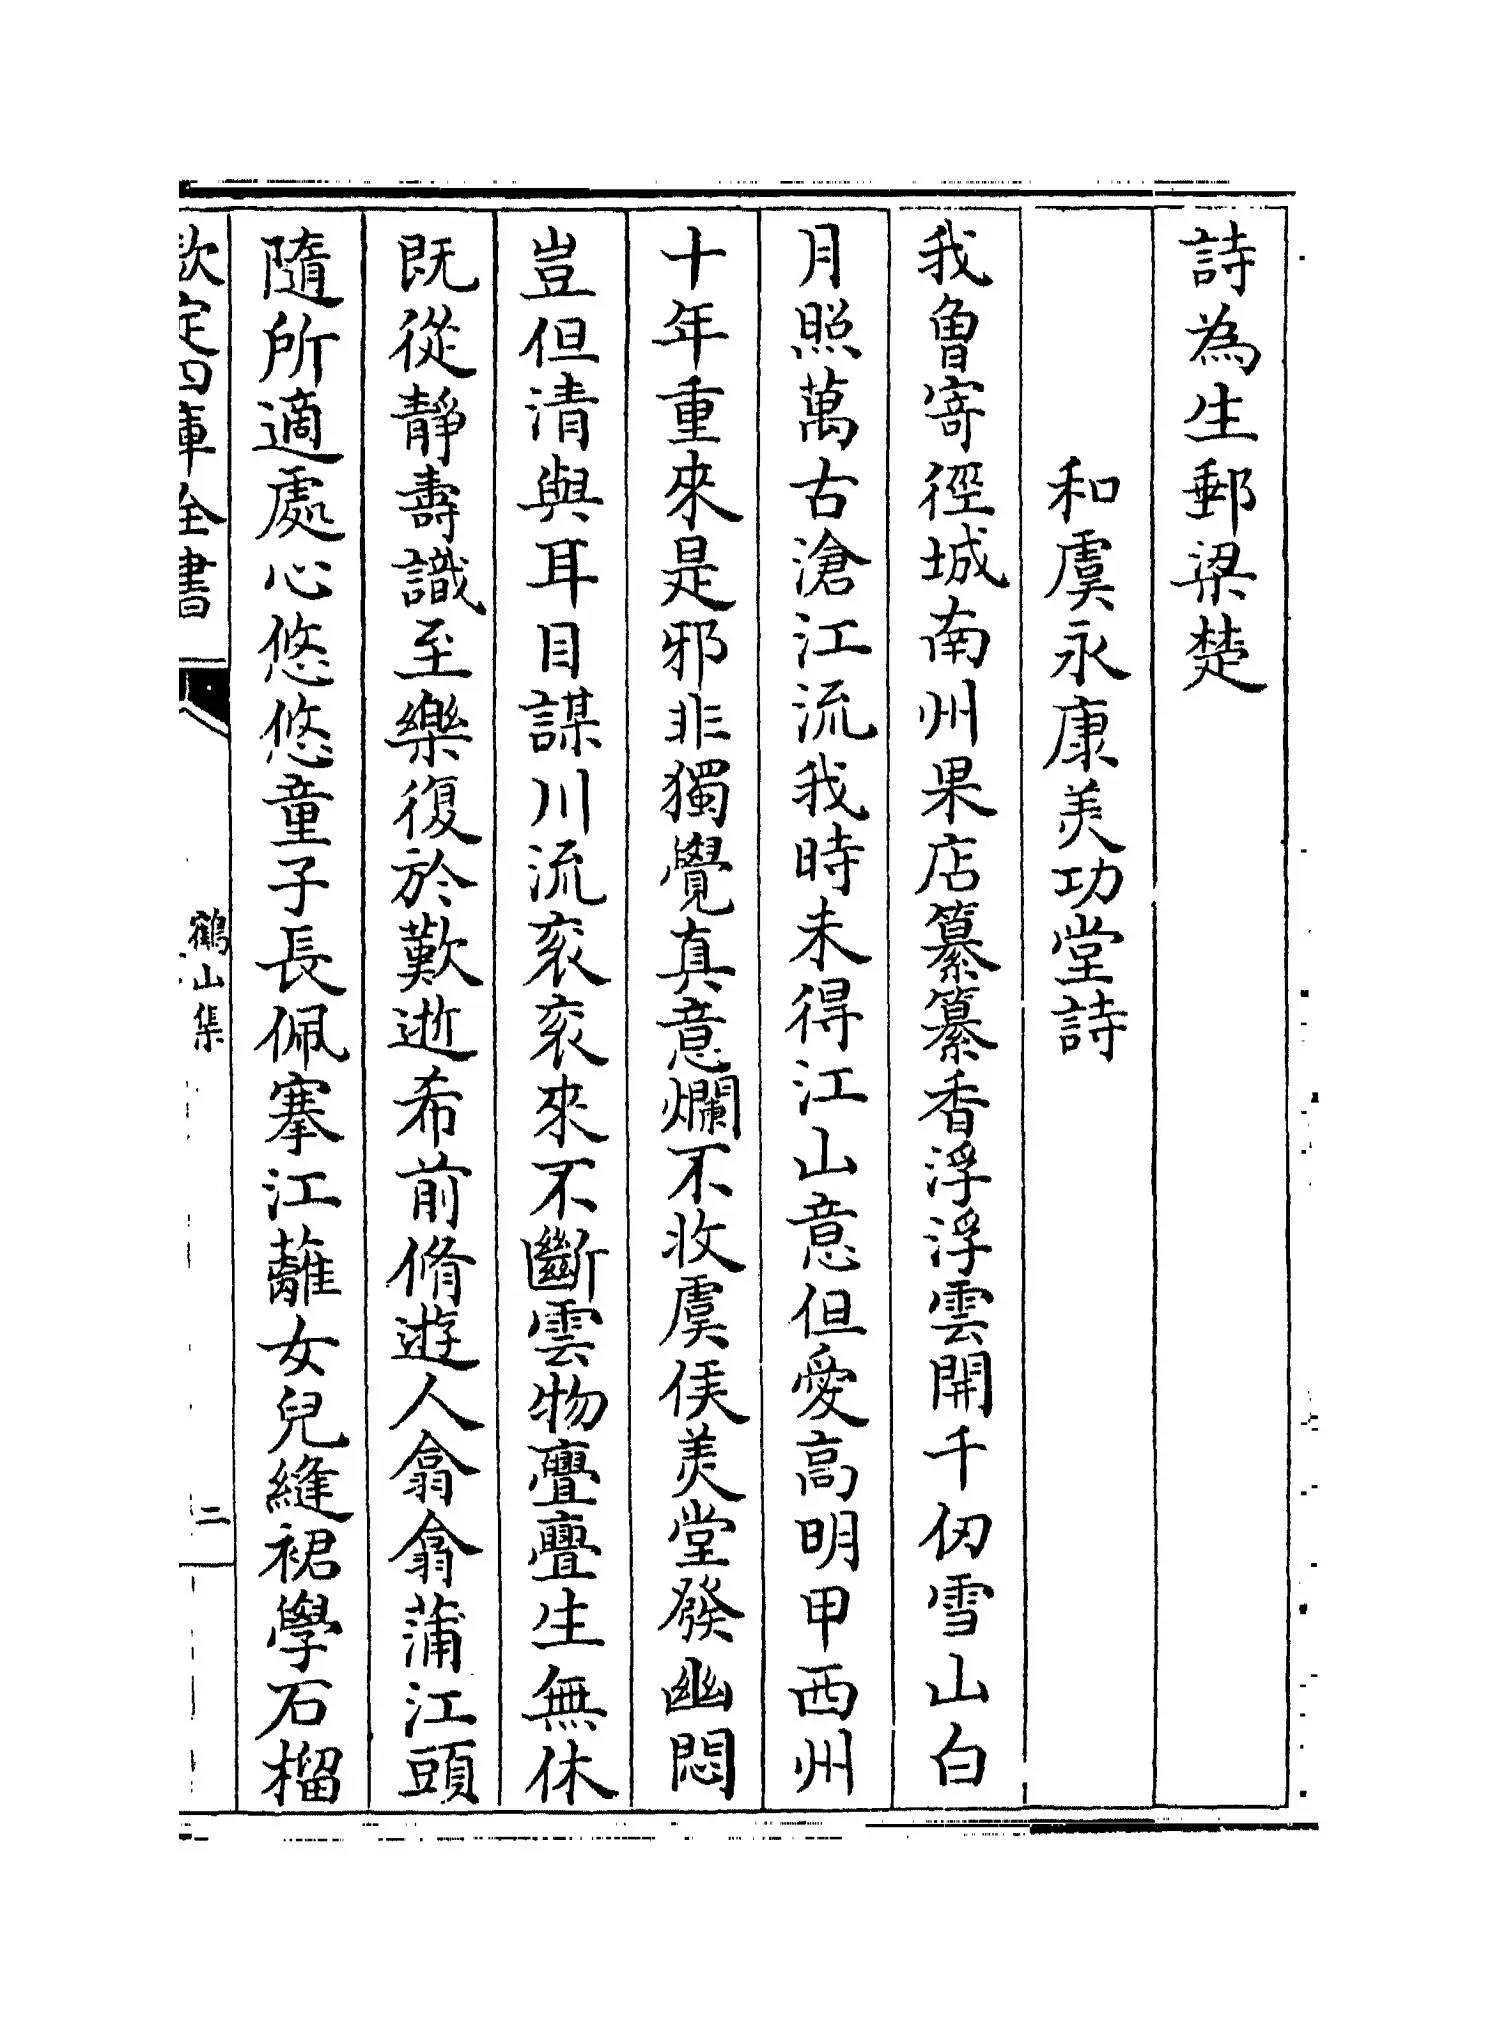 詩為生郵梁楚
和虞永康美功堂詩
我魯寄徑城南州果店纂纂香浮浮雲開千仞雪山白
月照萬古滄江流我時未得江山意但愛高明甲西州
十年重來是邪非獨覺真意爛不收虞侯美堂發幽悶
豈但清與耳目謀川流衮衮來不斷雲物亹亹生無休
既從靜壽識至樂復於歎逝希前脩遊人翕翕蒲江頭
隨所適處心悠悠童子長佩搴江蘺女兒縫裙學石榴
欽定四庫全書
鶴山集
二